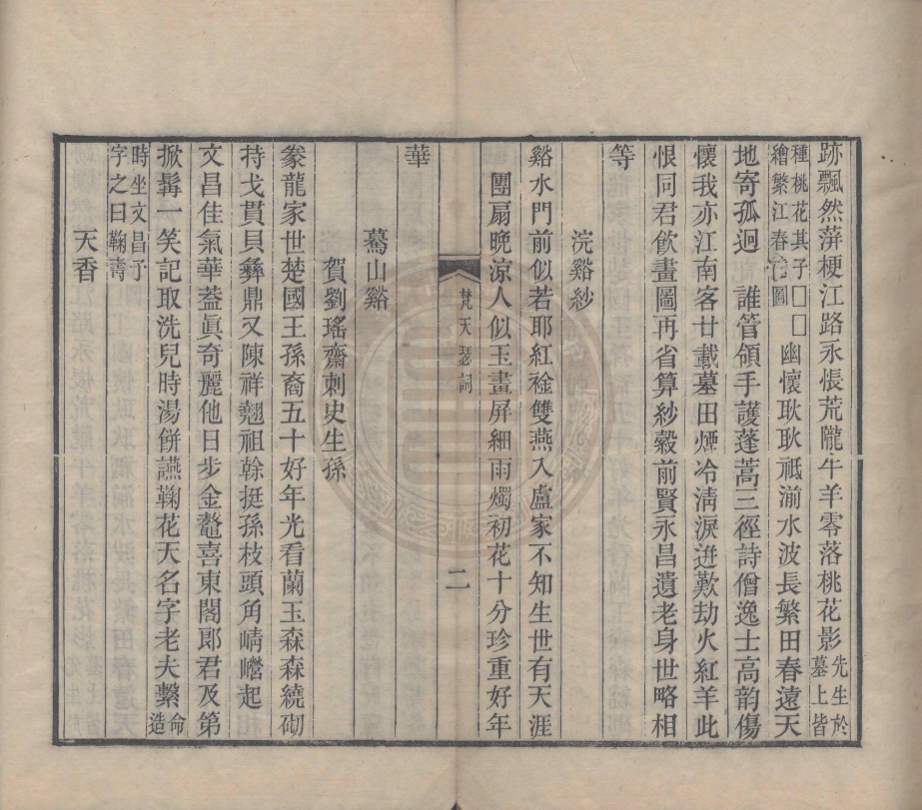 跡飄然蓱梗江路永悵荒隴牛羊零落桃花影先生於墓上皆
種桃花其子□□繪繁江春色圖幽懷耿耿祗湔水波長繁田春遠天
地寄孤迥　誰管領手護蓬蒿三徑詩僧逸士高韵傷
懷我亦江南客廿載墓田煙冷淸淚迸歎劫火紅羊此
恨同君飲畫圖再省算紗縠前賢永昌遺老身世略相
等
浣谿紗
谿水門前似若耶紅襟雙燕入盧家不知生世有天涯
團扇晚涼人似玉畫屏細雨燭初花十分珍重好年
華
梵天瑟詞
二
驀山谿
賀劉瑤齋刺史生孫
豢龍家世楚國王孫裔五十好年光看蘭玉森森繞砌
持戈貫貝彝鼎又陳祥翹祖榦挺孫枝頭角崝嶒起
文昌佳氣華蓋眞奇麗他日步金鼇喜東閣郎君及第
掀髯一笑記取洗兒時湯餅讌鞠花天名字老夫繫命造
時坐文昌予字之曰鞠靑
天香